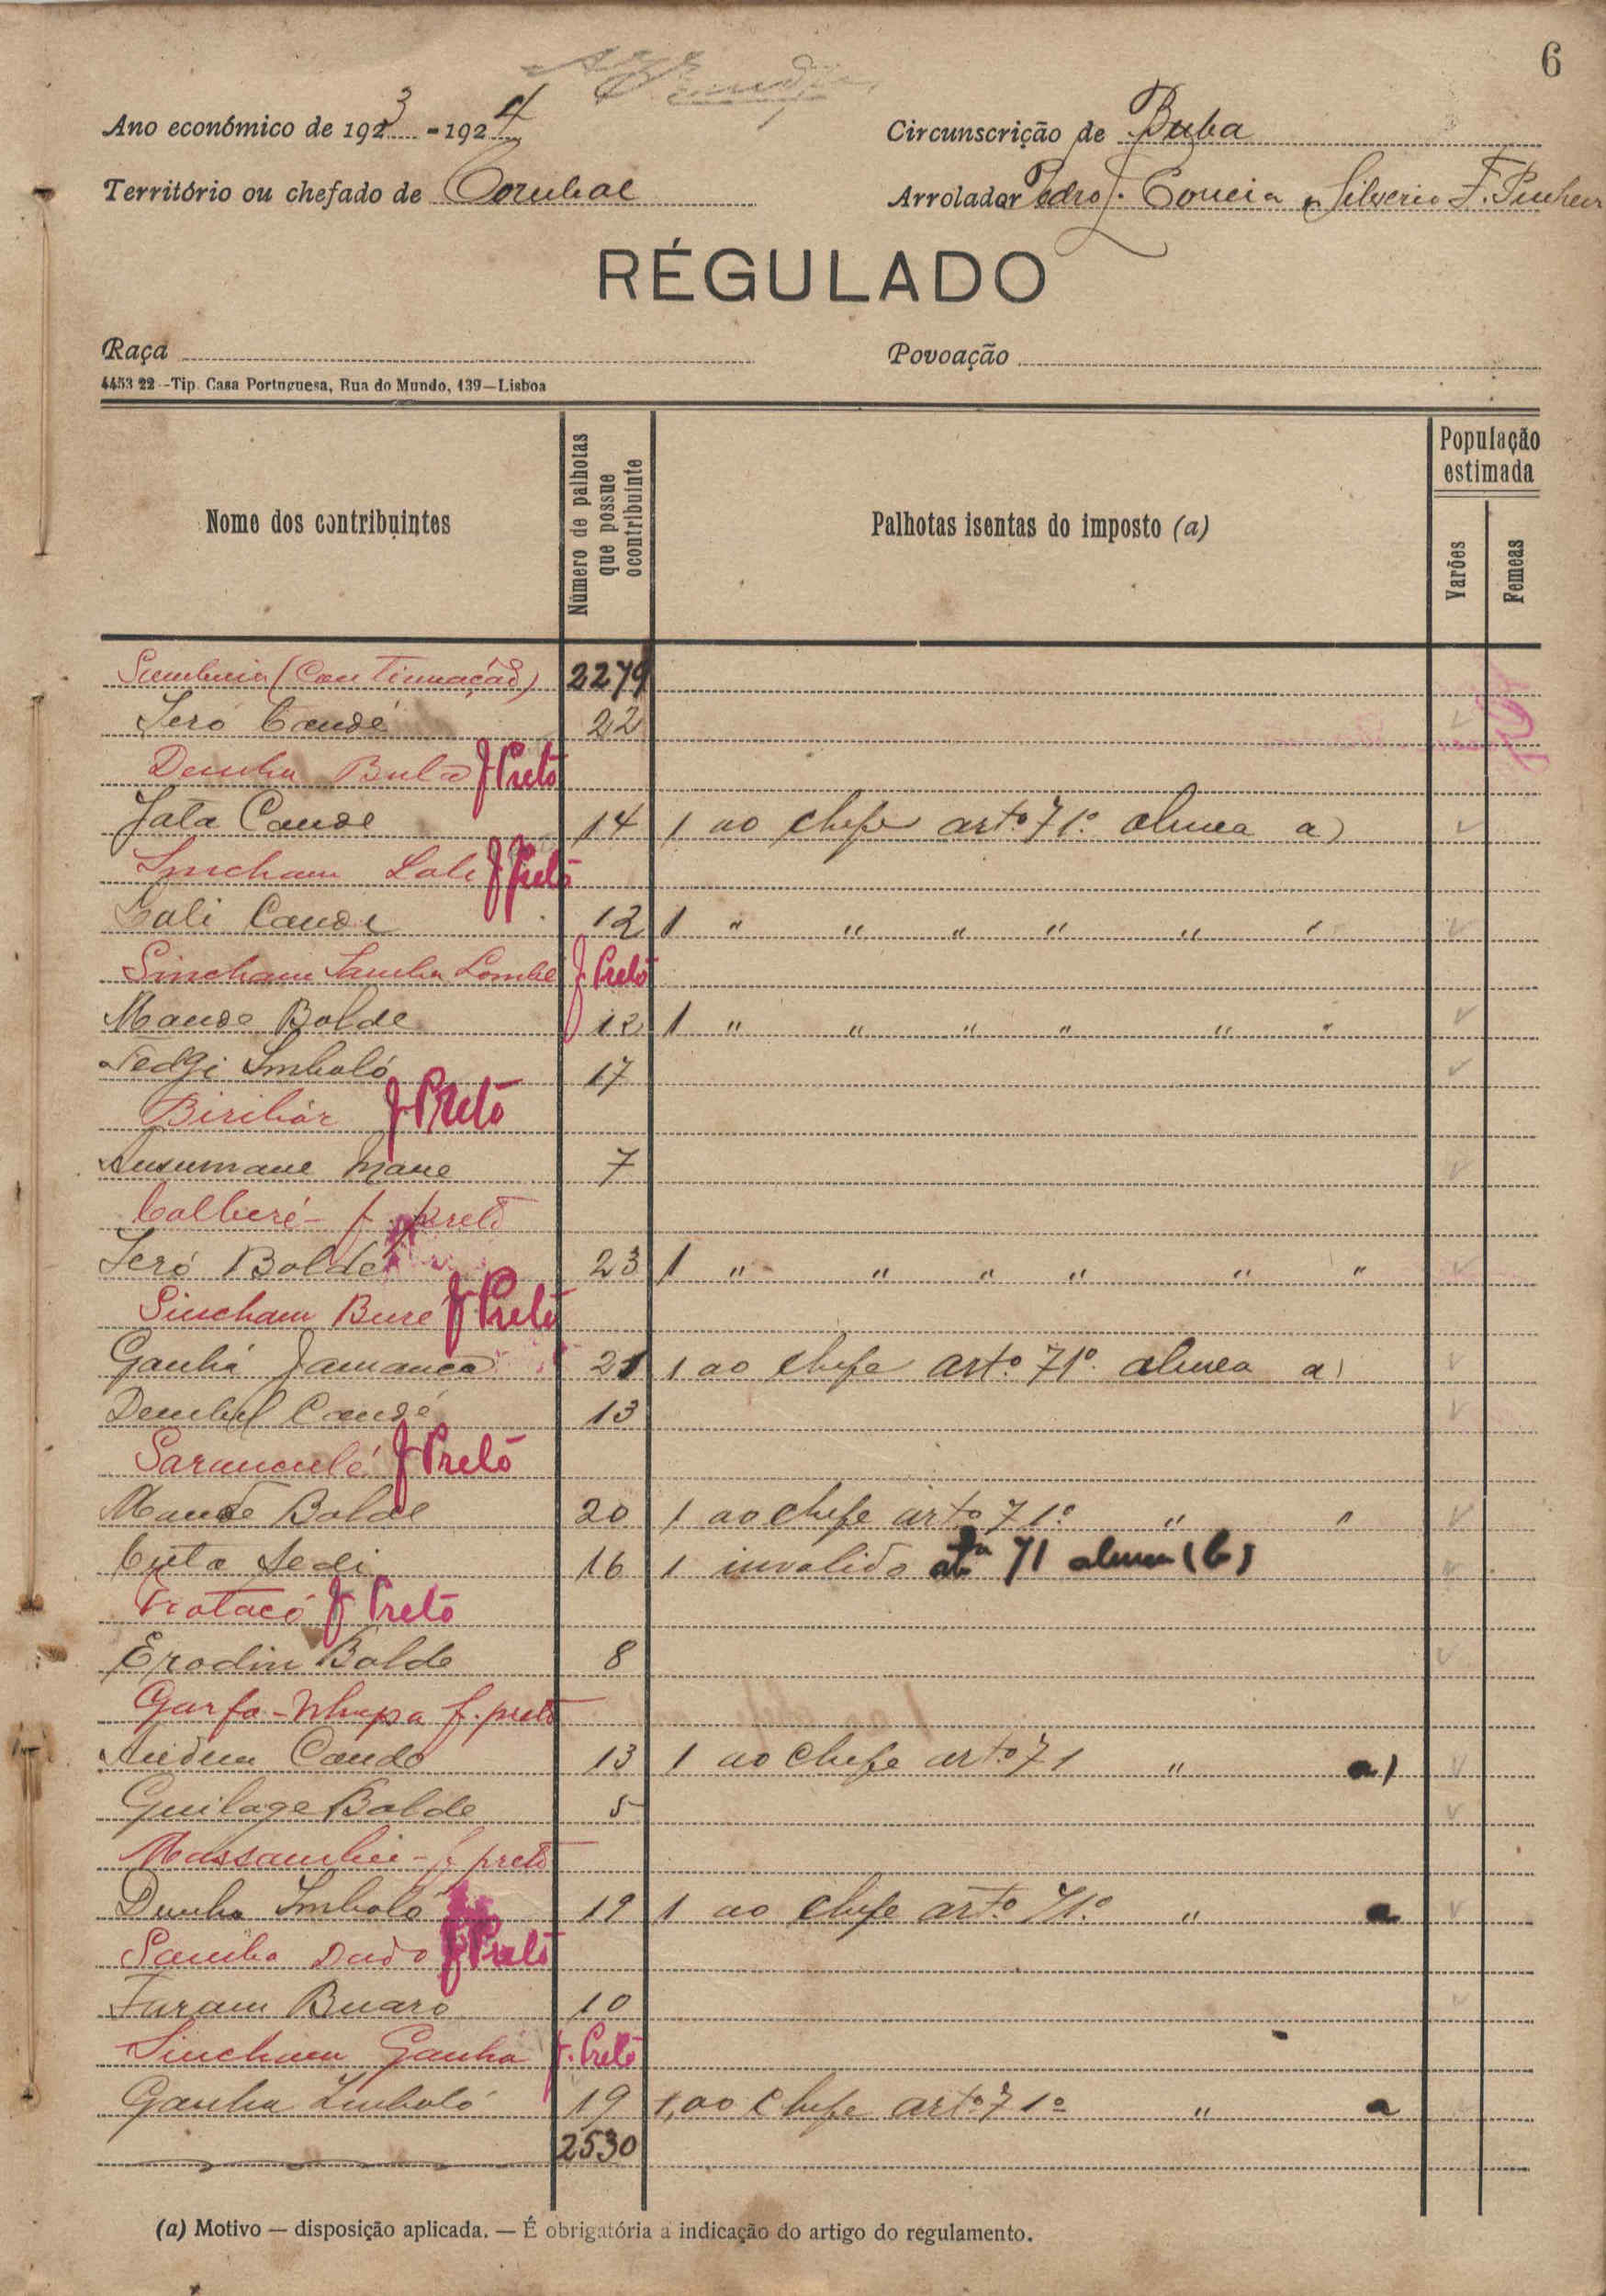 6
Ano económico de 1923 - 1924
Circunscrição de Buba
Território ou chefado de Corubal
Arrolador Pedro J. Correia e Silverio F. Pinheiro
RÉGULADO
Raça
Povoação
4453 22 - Tip. Casa Portuguesa, Rua do Mundo, 139—Lisboa
Nome dos contribuintes
Número de palhotas que possue o contribuinte
Palhotas isentas do imposto (a)
População estimada
Varões
Femeas
(Continuação) 2279
Seró Candé 22
Demba Bula J Preto
Jata Cande 14 1 ao chefe artº 71º alinea a)
Sincham Lali J Preto
Cali Cande 12 1 " " " " " "
Sincham Samba Lombe J. Preto
Mande Balde 12 1 " " " " " "
Tedgi Imbaló 17
Biribár J Preto
Ansumane Mane 7
Colberé - f. preto
Seró Baldé 23 1 " " " " " "
Sincham Bure J Preto
Ganhá Jamanca 21 1 ao chefe artº 71º alinea a)
Dembel Candé 13
Saranculé J Preto
Mande Balde 20 1 ao chefe artº 71º " "
Cuta Sedi 16 1 invalido artº 71 alinea (b)
J Preto
Erodin Balde 8
f. preto
Cande 13 1 ao chefe artº 71 " a)
Guilage Balde 5
f. preto
Demba Imbaló 19 1 ao chefe artº 71º " a
Samba Dado J Preto
Faram Buaro 10
Sincham Ganha f. Preto
Ganha Imbaló 19 1 ao chefe artº 71º " a
2530
(a) Motivo — disposição aplicada. — É obrigatória a indicação do artigo do regulamento.